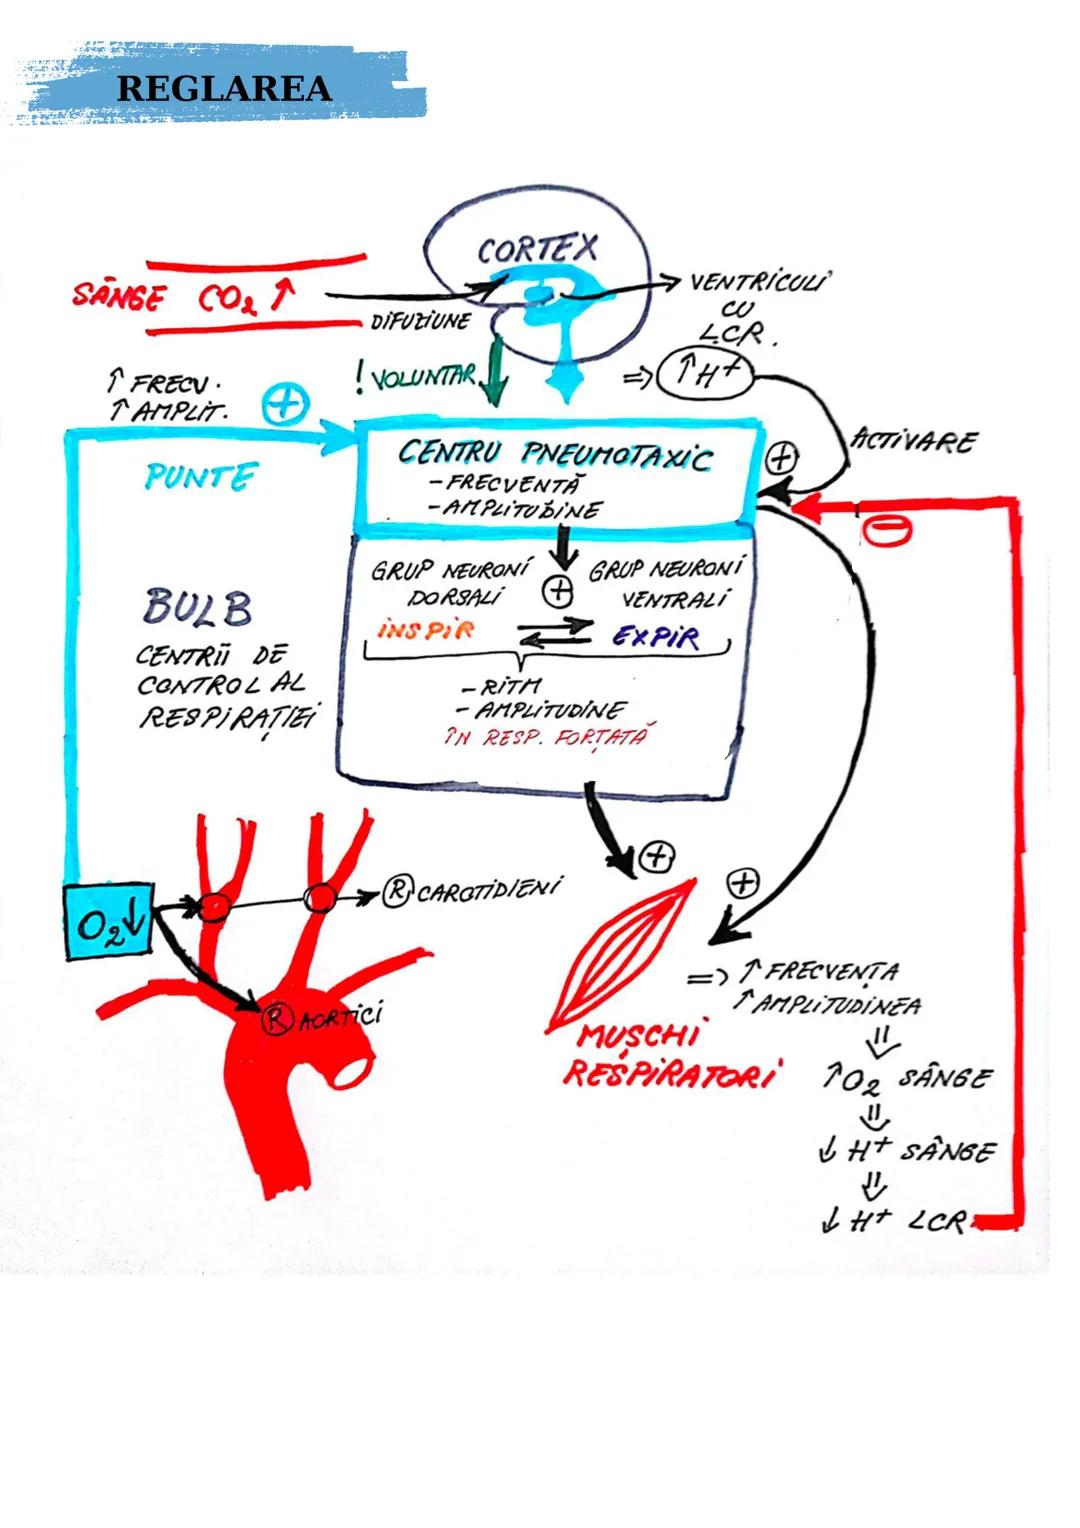 REGLAREA
CORTEX
SÂNGE CO₂ ↑
DIFUZIUNE
VENTRICULI
CU
LCR.
! VOLUNTAR
⇒ ↑H+
↑ FRECV.
↑ AMPLIT.
+
ACTIVARE
+
PUNTE
CENTRU PNEUMOTAXIC
- FRECVENȚĂ
- AMPLITUDINE
−
GRUP NEURONI
DORSALI
INSPIR
+
GRUP NEURONI
VENTRALI
EXPIR
BULB
CENTRII DE
CONTROL AL
RESPIRAȚIEI
- RITM
- AMPLITUDINE
ÎN RESP. FORȚATĂ
+
+
O₂↓
R CAROTIDIENI
R AORTICI
MUȘCHI
RESPIRATORI
=> ↑ FRECVENȚA
↑ AMPLITUDINEA
⇓
↑O₂ SÂNGE
⇓
↓ H+ SÂNGE
⇓
↓ H+ LCR